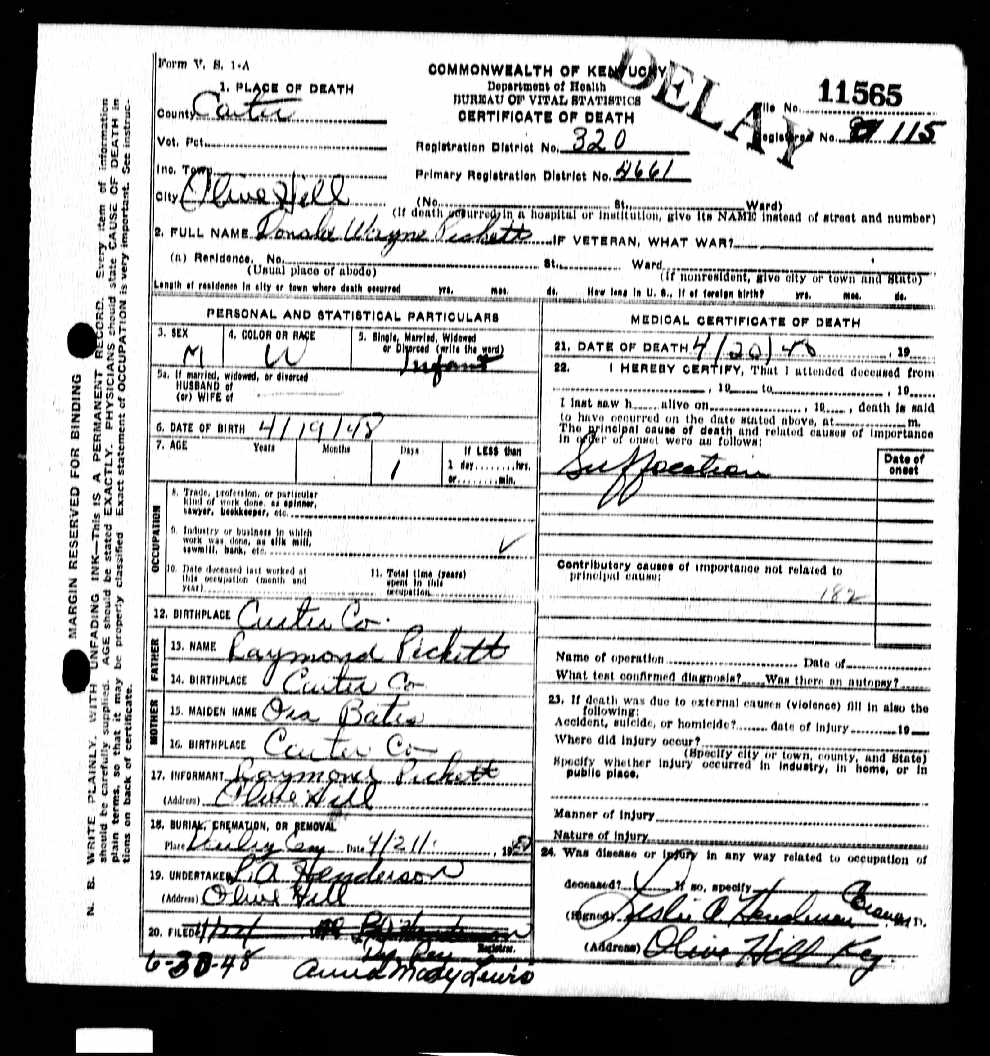 Form V. S. 1-A
COMMONWEALTH OF KENTUCKY
Department of Health
BUREAU OF VITAL STATISTICS
CERTIFICATE OF DEATH
DELAY
File No. 11565
Registered No. 115
Registration District No. 320
Primary Registration District No. 4661
1. PLACE OF DEATH
County Carter
Vot. Pct.
Inc. Town
City Olive Hill
(No. St., Ward)
(If death occurred in a hospital or institution, give its NAME instead of street and number)
2. FULL NAME Donald Wayne Pickett IF VETERAN, WHAT WAR?
(a) Residence. No. St., Ward
(Usual place of abode) (If nonresident, give city or town and State)
Length of residence in city or town where death occurred yrs. mos. ds. How long in U. S., if of foreign birth? yrs. mos. ds.
PERSONAL AND STATISTICAL PARTICULARS
3. SEX M
4. COLOR OR RACE W
5. Single, Married, Widowed
or Divorced (write the word)
Infant
5a. If married, widowed, or divorced
HUSBAND of
(or) WIFE of
6. DATE OF BIRTH 4/19/48
7. AGE Years Months Days If LESS than
1 1 day, hrs.
or min.
OCCUPATION
8. Trade, profession, or particular
kind of work done, as spinner,
sawyer, bookkeeper, etc.
9. Industry or business in which
work was done, as silk mill,
sawmill, bank, etc.
10. Date deceased last worked at
this occupation (month and
year)
11. Total time (years)
spent in this
occupation
12. BIRTHPLACE Carter Co.
FATHER
13. NAME Raymond Pickett
14. BIRTHPLACE Carter Co
MOTHER
15. MAIDEN NAME Ora Bates
16. BIRTHPLACE Carter Co
17. INFORMANT Raymond Pickett
(Address) Olive Hill
18. BURIAL, CREMATION, OR REMOVAL
Place Date 4/21/ 19
19. UNDERTAKER Henderson
(Address) Olive Hill
20. FILED
Registrar.
Dep Reg
6-30-48 Anna Mary Lewis
MEDICAL CERTIFICATE OF DEATH
21. DATE OF DEATH 4/20/48, 19
22. I HEREBY CERTIFY, That I attended deceased from
, 19 to , 19
I last saw h alive on , 19 , death is said
to have occurred on the date stated above, at m.
The principal cause of death and related causes of importance
in order of onset were as follows:
Date of
onset
Suffocation
Contributory causes of importance not related to
principal cause:
182
Name of operation Date of
What test confirmed diagnosis? Was there an autopsy?
23. If death was due to external causes (violence) fill in also the
following:
Accident, suicide, or homicide? date of injury 19
Where did injury occur?
(Specify city or town, county, and State)
Specify whether injury occurred in industry, in home, or in
public place.
Manner of injury
Nature of injury
24. Was disease or injury in any way related to occupation of
deceased? If so, specify
(Signed) Leslie A Henderson Coroner
(Address) Olive Hill Ky.
MARGIN RESERVED FOR BINDING
N. B. WRITE PLAINLY, WITH UNFADING INK—THIS IS A PERMANENT RECORD. Every item of information
should be carefully supplied. AGE should be stated EXACTLY. PHYSICIANS should state CAUSE OF DEATH in
plain terms, so that it may be properly classified. Exact statement of OCCUPATION is very important. See instruc-
tions on back of certificate.